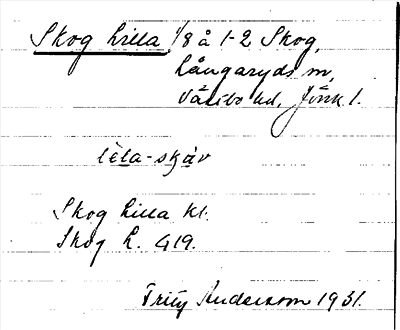 Skog lilla 1/8 å 1-2 Skog,
Långaryds sn,
Västbo hd, Jönk. l.
lèla-skáv
Skog lilla Kt.
Skog L. G19.
Fritz Anderson 1931.